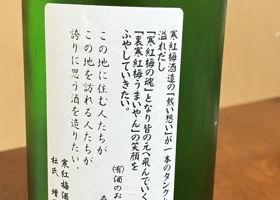 寒紅梅酒造の「熱い想い」が一本のタンク
溢れだし
「寒紅梅の魂」となり皆の元へ飛んでいく
「裏寒紅梅うまいやん」の笑顔を
ふやしていきたい。
㈲酒のお
この地に住む人たちが
この地を訪れる人たちが
誇りに思う酒を造りたい。
寒紅梅酒
杜氏 増